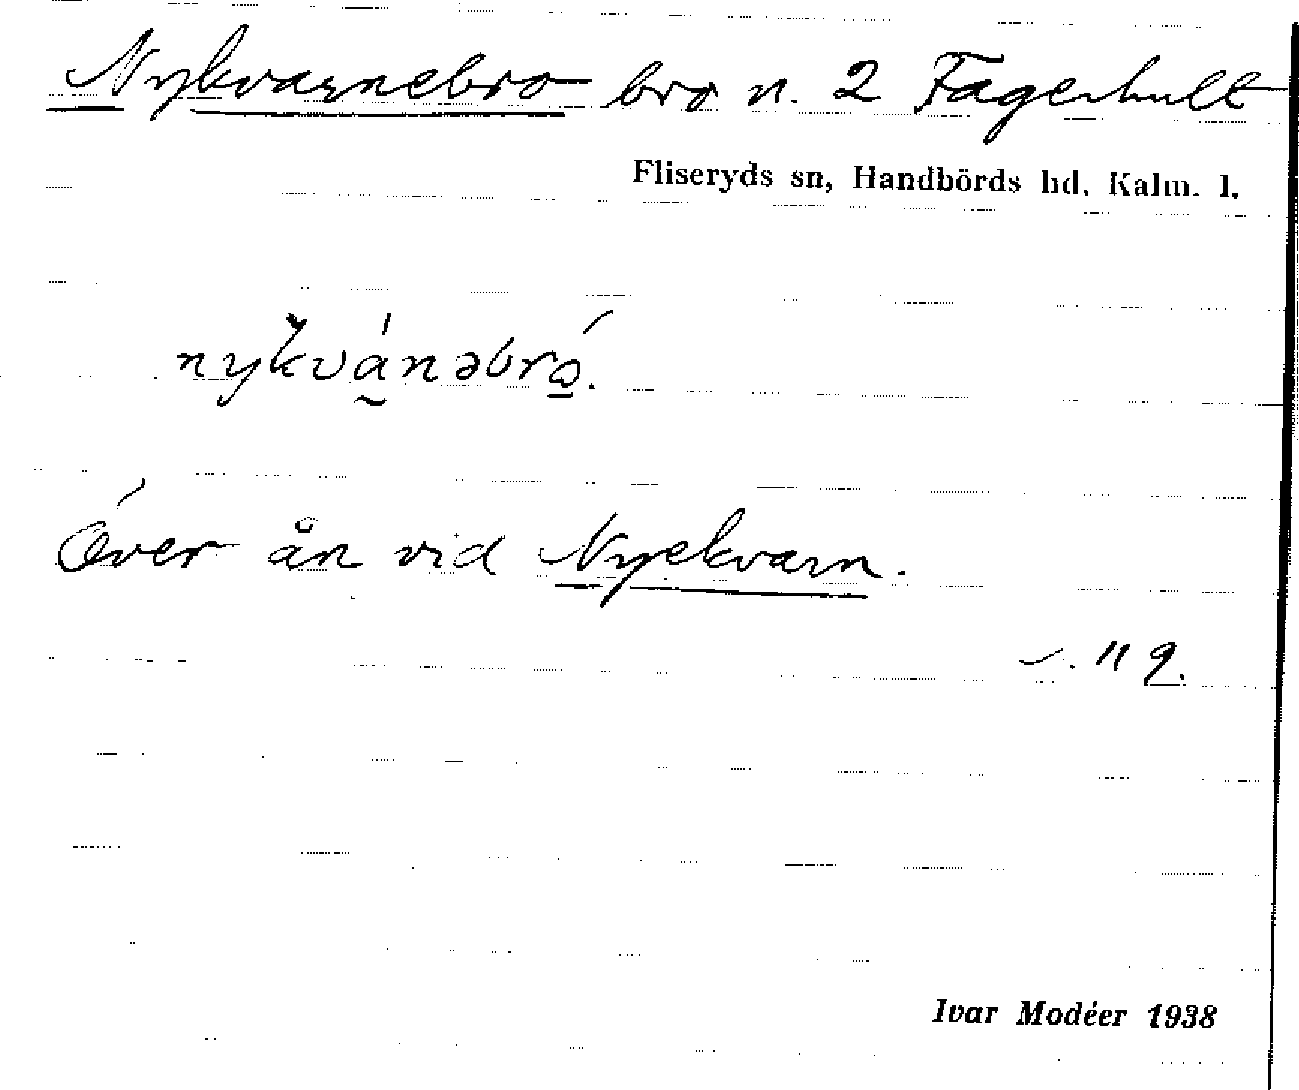 Nykvarnebro bro n. 2 Fagerhult
Fliseryds sn, Handbörds hd, Kalm. l.
nykvá̰nəbró̱.
Över ån vid Nyekvarn.
Ivar Modéer 1938